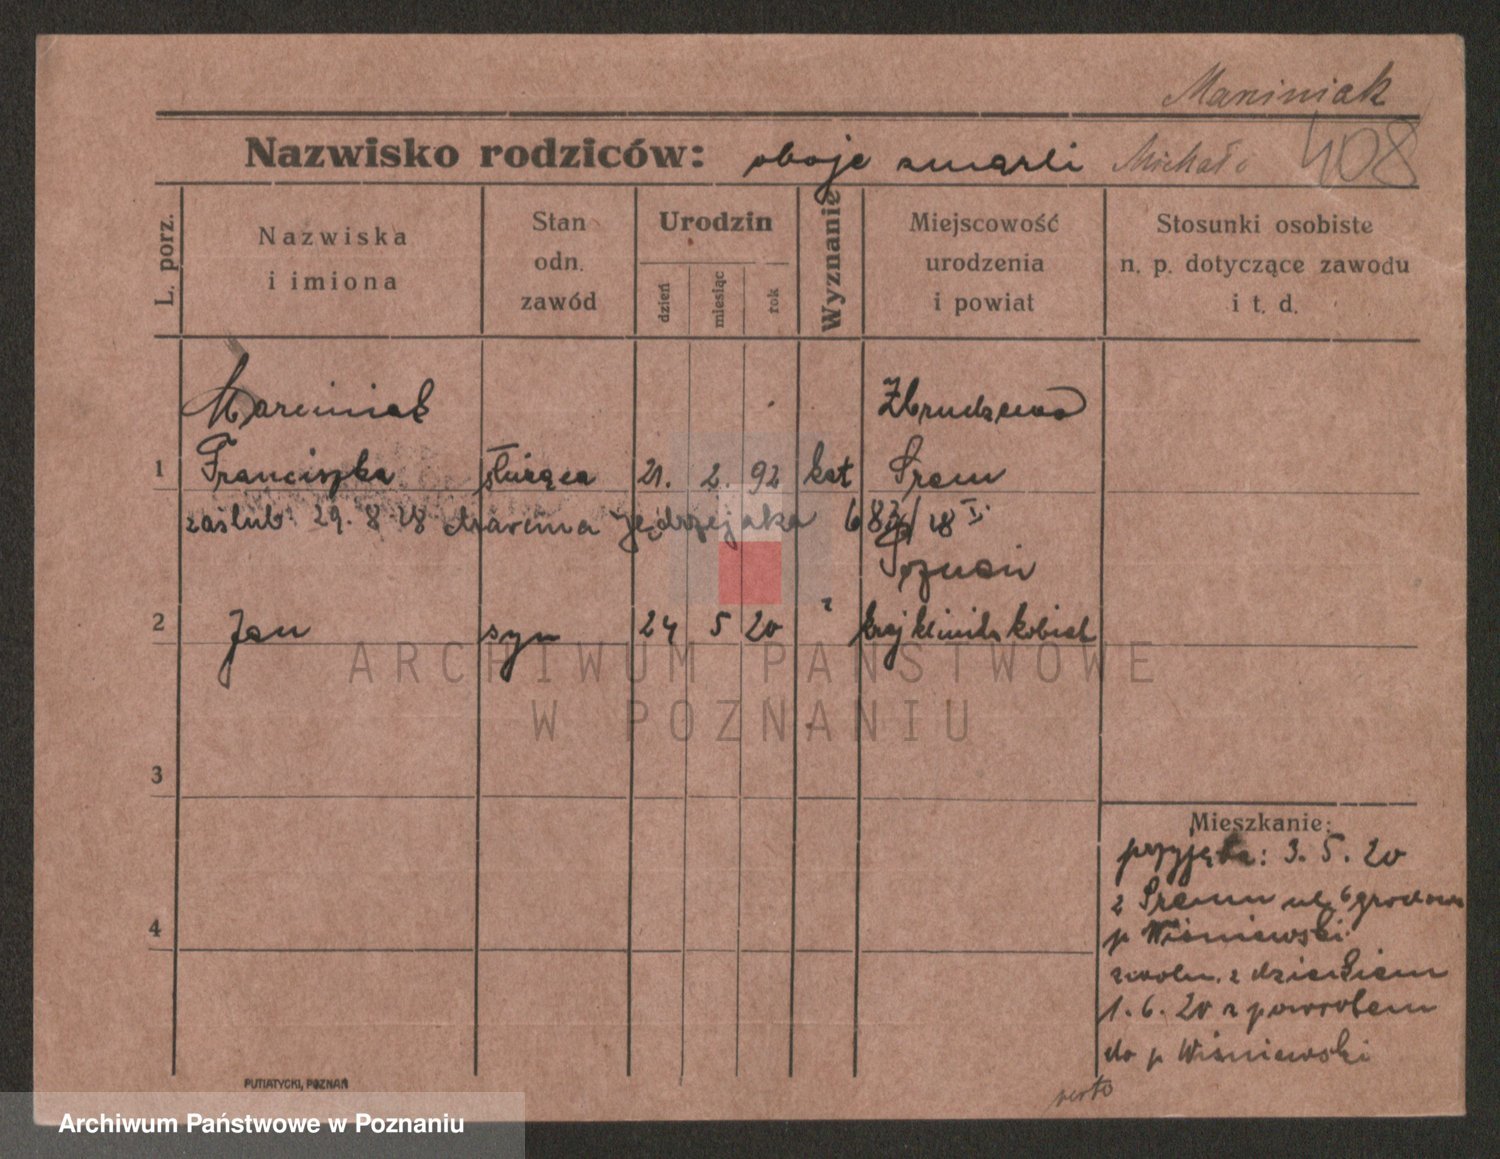 Marciniak
Nazwisko rodziców: oboje zmarli Michał 408
L. porz.
Nazwiska
i imiona
Stan
odn.
zawód
Urodzin
dzień
miesiąc
rok
Wyznanie
Miejscowość
urodzenia
i powiat
Stosunki osobiste
n. p. dotyczące zawodu
i t. d.
Marciniak Zbrudzewo
1 Franciszka służąca 21. 2. 92 kat Śrem
zaślub. 29. 8 28 Marcina Jędrzejaka
Poznań
2 Jan syn 24 5 20 kraj klinika kobiet
ARCHIWUM PAŃSTWOWE
W POZNANIU
3
4
Mieszkanie:
przyjęta: 3. 5. 20
z Śremu ul.
p Wiśniewski
zwoln. z dzieckiem
1. 6. 20 z powrotem
do p Wiśniewski
verte
PUTIATYCKI, POZNAŃ
Archiwum Państwowe w Poznaniu